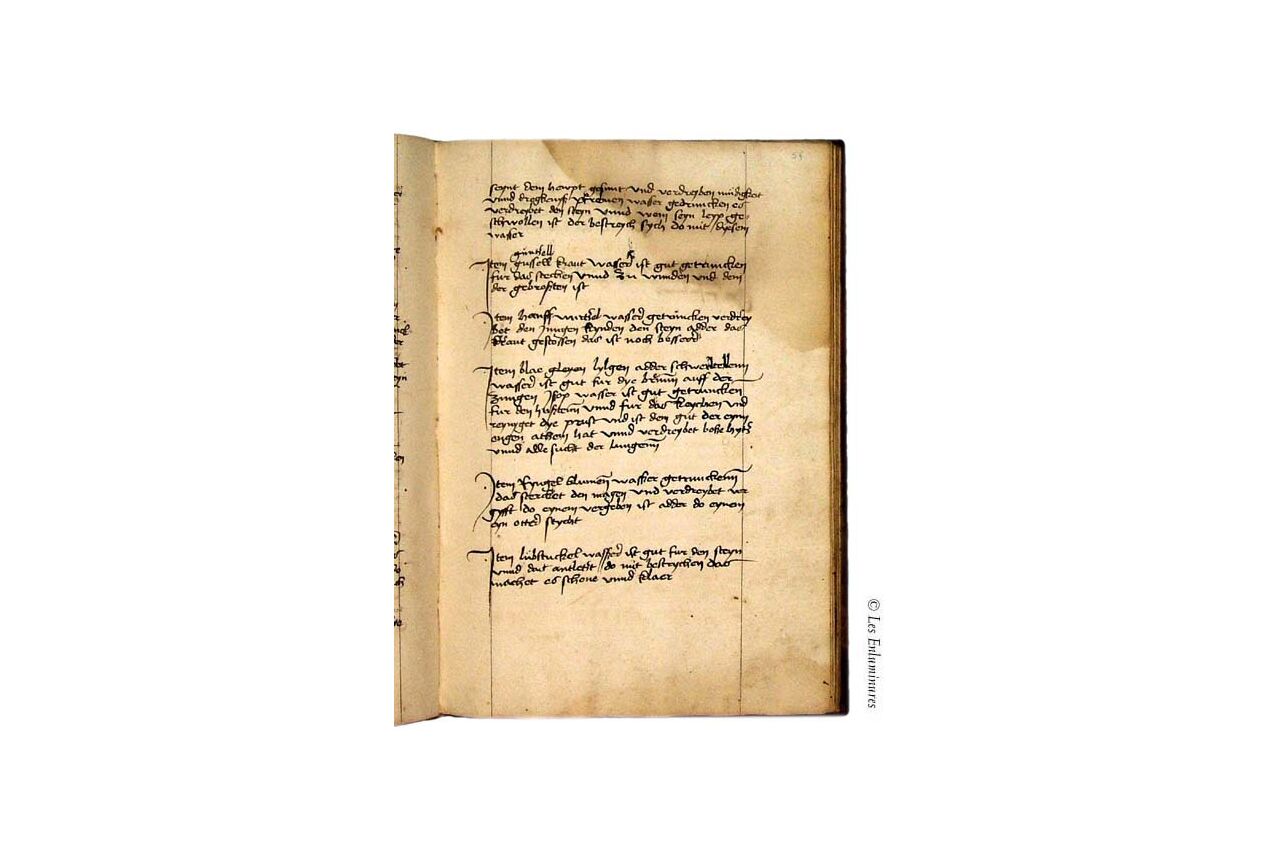 seynt dem hewpt gesunt vnd verdreyben müdigkeit
vnnd wasser gedruncken es
verdreybet den steyn vnnd wem seyn leyp ge-
schwollen ist der bestreych sych do mit dysem
wasser
günthell
Item gussell kraut wasser ist gut getruncken
fur das stechen vnnd zu wunden vnd dem
der gebrosten ist
Item hanff wasser getruncken verdrey
bet den Jungen kynden den steyn adder das
kraut gestossen das ist noch besserr
Item blae gloyen lylgen adder
wasser ist gut fur dye brunn auff der
zungen Isop wasser ist gut getruncken
fur den hustenn vnnd fur das keychen vnd
reyniget dye prust vnd ist dem gut der eyn
engen athem hat vnnd verdreybet bose hytz
vnnd alle sucht der lungenn
Item Ryngel blumen wasser getrunckenn
das stercket den magen vnd verdreybet ver
gyfft do eynem vergeben ist adder do eynem
eyn otter stycht
Item lübstuckel wasser ist gut fur den steyn
vnnd das antlett do mit bestrychen das
machet es schone vnnd klaer
© Les Enluminures